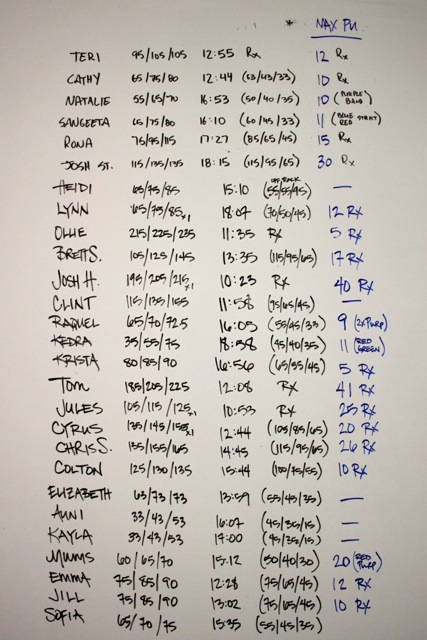 MAX PU
TERI 95/105/105 12:55 Rx 12 Rx
CATHY 65/75/80 12:44 (63/43/33) 10 Rx
NATALIE 55/65/70 16:53 (50/40/35) 10 (PURPLE BAND)
SANGEETA 65/75/80 16:10 (60/45/33) 11 (BLUE RED STRICT)
RONA 75/95/115 17:27 (85/65/45) 15 Rx
JOSH ST. 115/135/135 18:15 (115/95/65) 30 Rx
HEIDI 65/75/85 15:10 OFF RACK (55/55/45) —
LYNN 65/75/85x1 18:07 (70/50/45) 12 RX
OLLIE 215/225/235 11:35 RX 5 RX
BRETT S. 105/125/145 13:35 (115/95/65) 17 RX
JOSH H. 195/205/215x1 10:23 RX 40 RX
CLINT 115/135/155 11:58 (95/65/45) —
RAQUEL 65/70/72.5 16:05 (55/45/33) 9 (2x PURP)
KEDRA 35/55/75 18:58 (45/40/35) 11 (RED GREEN)
KRISTA 80/85/90 16:56 (65/55/45) 5 RX
TOM 185/205/225 12:08 RX 41 RX
JULES 105/115/125x1 10:53 RX 25 RX
CYRUS 135/145/155x1 12:44 (105/85/65) 20 RX
CHRIS S. 135/155/165 14:45 (115/95/65) 26 RX
COLTON 125/130/135 15:44 (100/75/55) 10 RX
ELIZABETH 63/73/73 13:59 (55/45/35) —
33/43/53 16:07 (45/35/15) —
KAYLA 33/43/53 17:00 (45/35/15) —
MUMS 60/65/70 15:12 (50/40/30) 20 (RED PURP)
EMMA 75/85/90 12:28 (75/65/45) 12 RX
JILL 75/85/90 13:02 (75/65/45) 10 RX
SOFIA 65/70/75 15:35 (55/45/35)